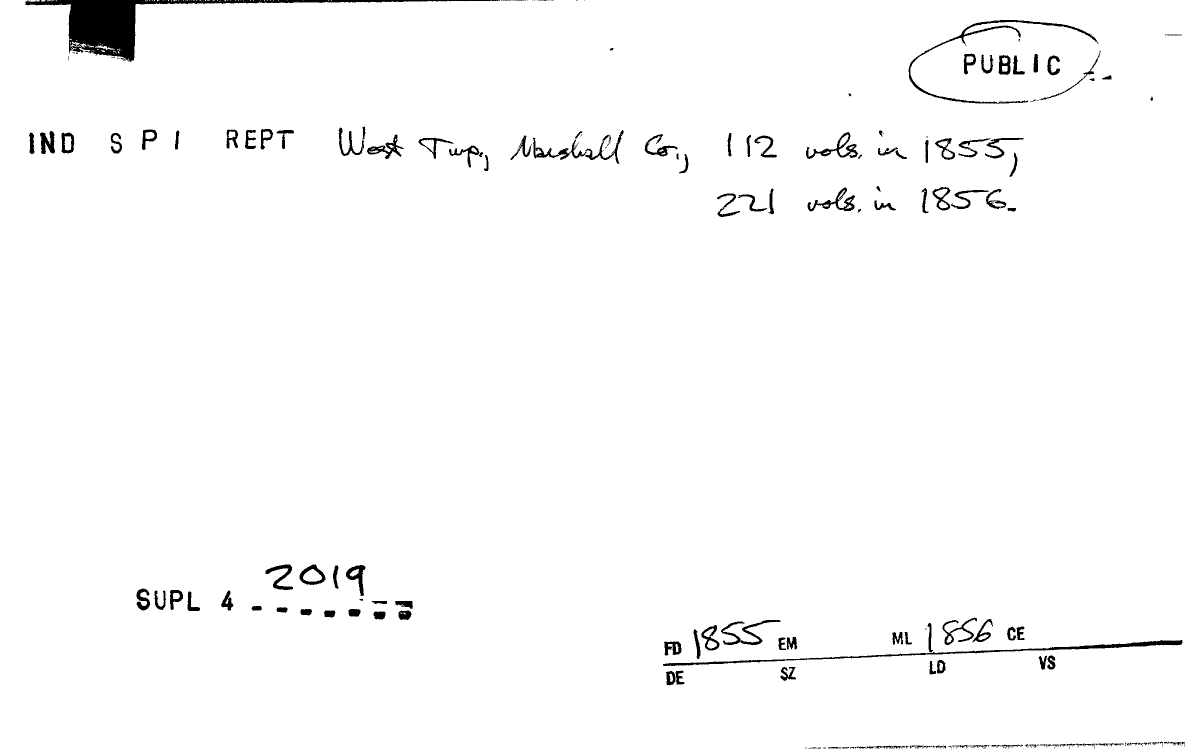 PUBLIC
IND S P I REPT West Twp., Marshall Co., 112 vols. in 1855,
221 vols. in 1856.
2019
SUPL 4
FD 1855 EM ML 1856 CE
DE SZ LD VS